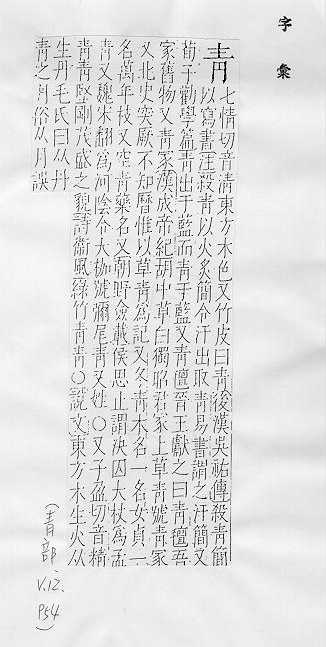 字彙
靑
七情切音淸東方木色又竹皮曰靑後漢吳祐傳殺靑簡
以寫書注殺靑以火炙簡令汗出取靑易書謂之汗簡又
荀子勸學篇靑出于藍而靑于藍又靑氊晉王獻之曰靑氊吾
家舊物又靑冢漢成帝紀胡中草白獨昭君冢上草靑號靑冢
又北史突厥不知曆惟以草靑爲記又冬靑木名一名女貞一
名萬年枝又空靑藥名又朝野僉載侯思止謂決囚大杖爲孟
靑又魏宋翻爲河陰令大枷號彌尾靑又姓○又子盈切音精
靑靑堅剛茂盛之貌詩衛風綠竹靑靑○說文東方木生火从
生丹毛氏曰从丹
靑之月俗从月誤
(青部, V.12. P54)